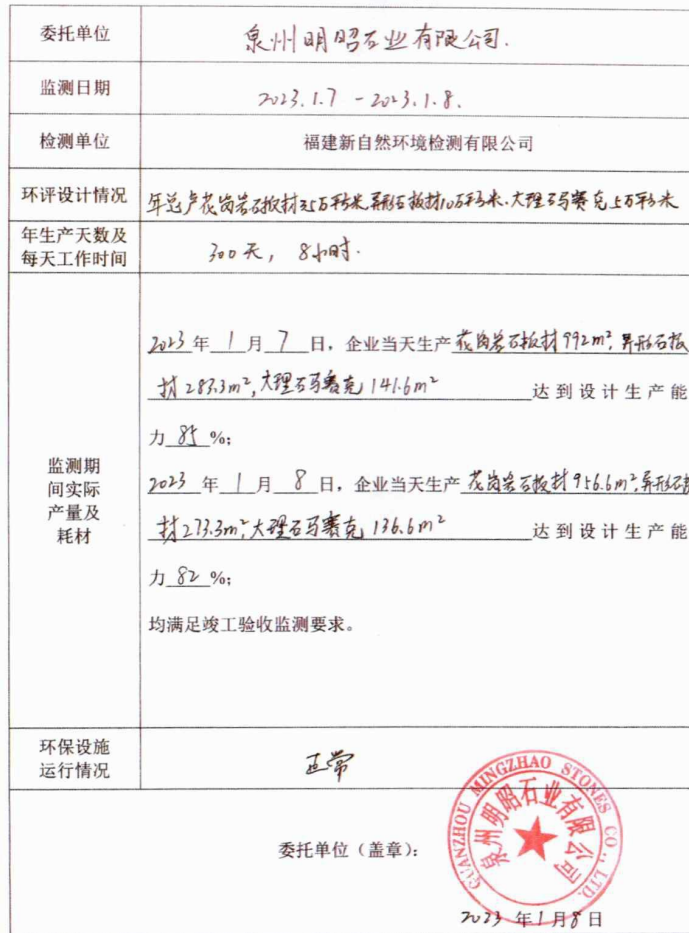 委托单位
泉州明昭石业有限公司.
监测日期
2023.1.7 - 2023.1.8.
检测单位
福建新自然环境检测有限公司
环评设计情况
年总产花岗岩石板材35万平方米,异形石板材10万平方米、大理石马赛克5万平方米
年生产天数及
每天工作时间
300天, 8小时.
监测期
间实际
产量及
耗材
2023年1月7日，企业当天生产花岗岩石板材992m²,异形石板
材283.3m²,大理石马赛克141.6m² 达到设计生产能
力85%;
2023年1月8日，企业当天生产花岗岩石板材956.6m²,异形石板
材273.3m²,大理石马赛克136.6m² 达到设计生产能
力82%;
均满足竣工验收监测要求。
环保设施
运行情况
正常
委托单位（盖章）:
QUANZHOU MINGZHAO STONES CO., LTD.
泉州明昭石业有限公司
2023年1月8日